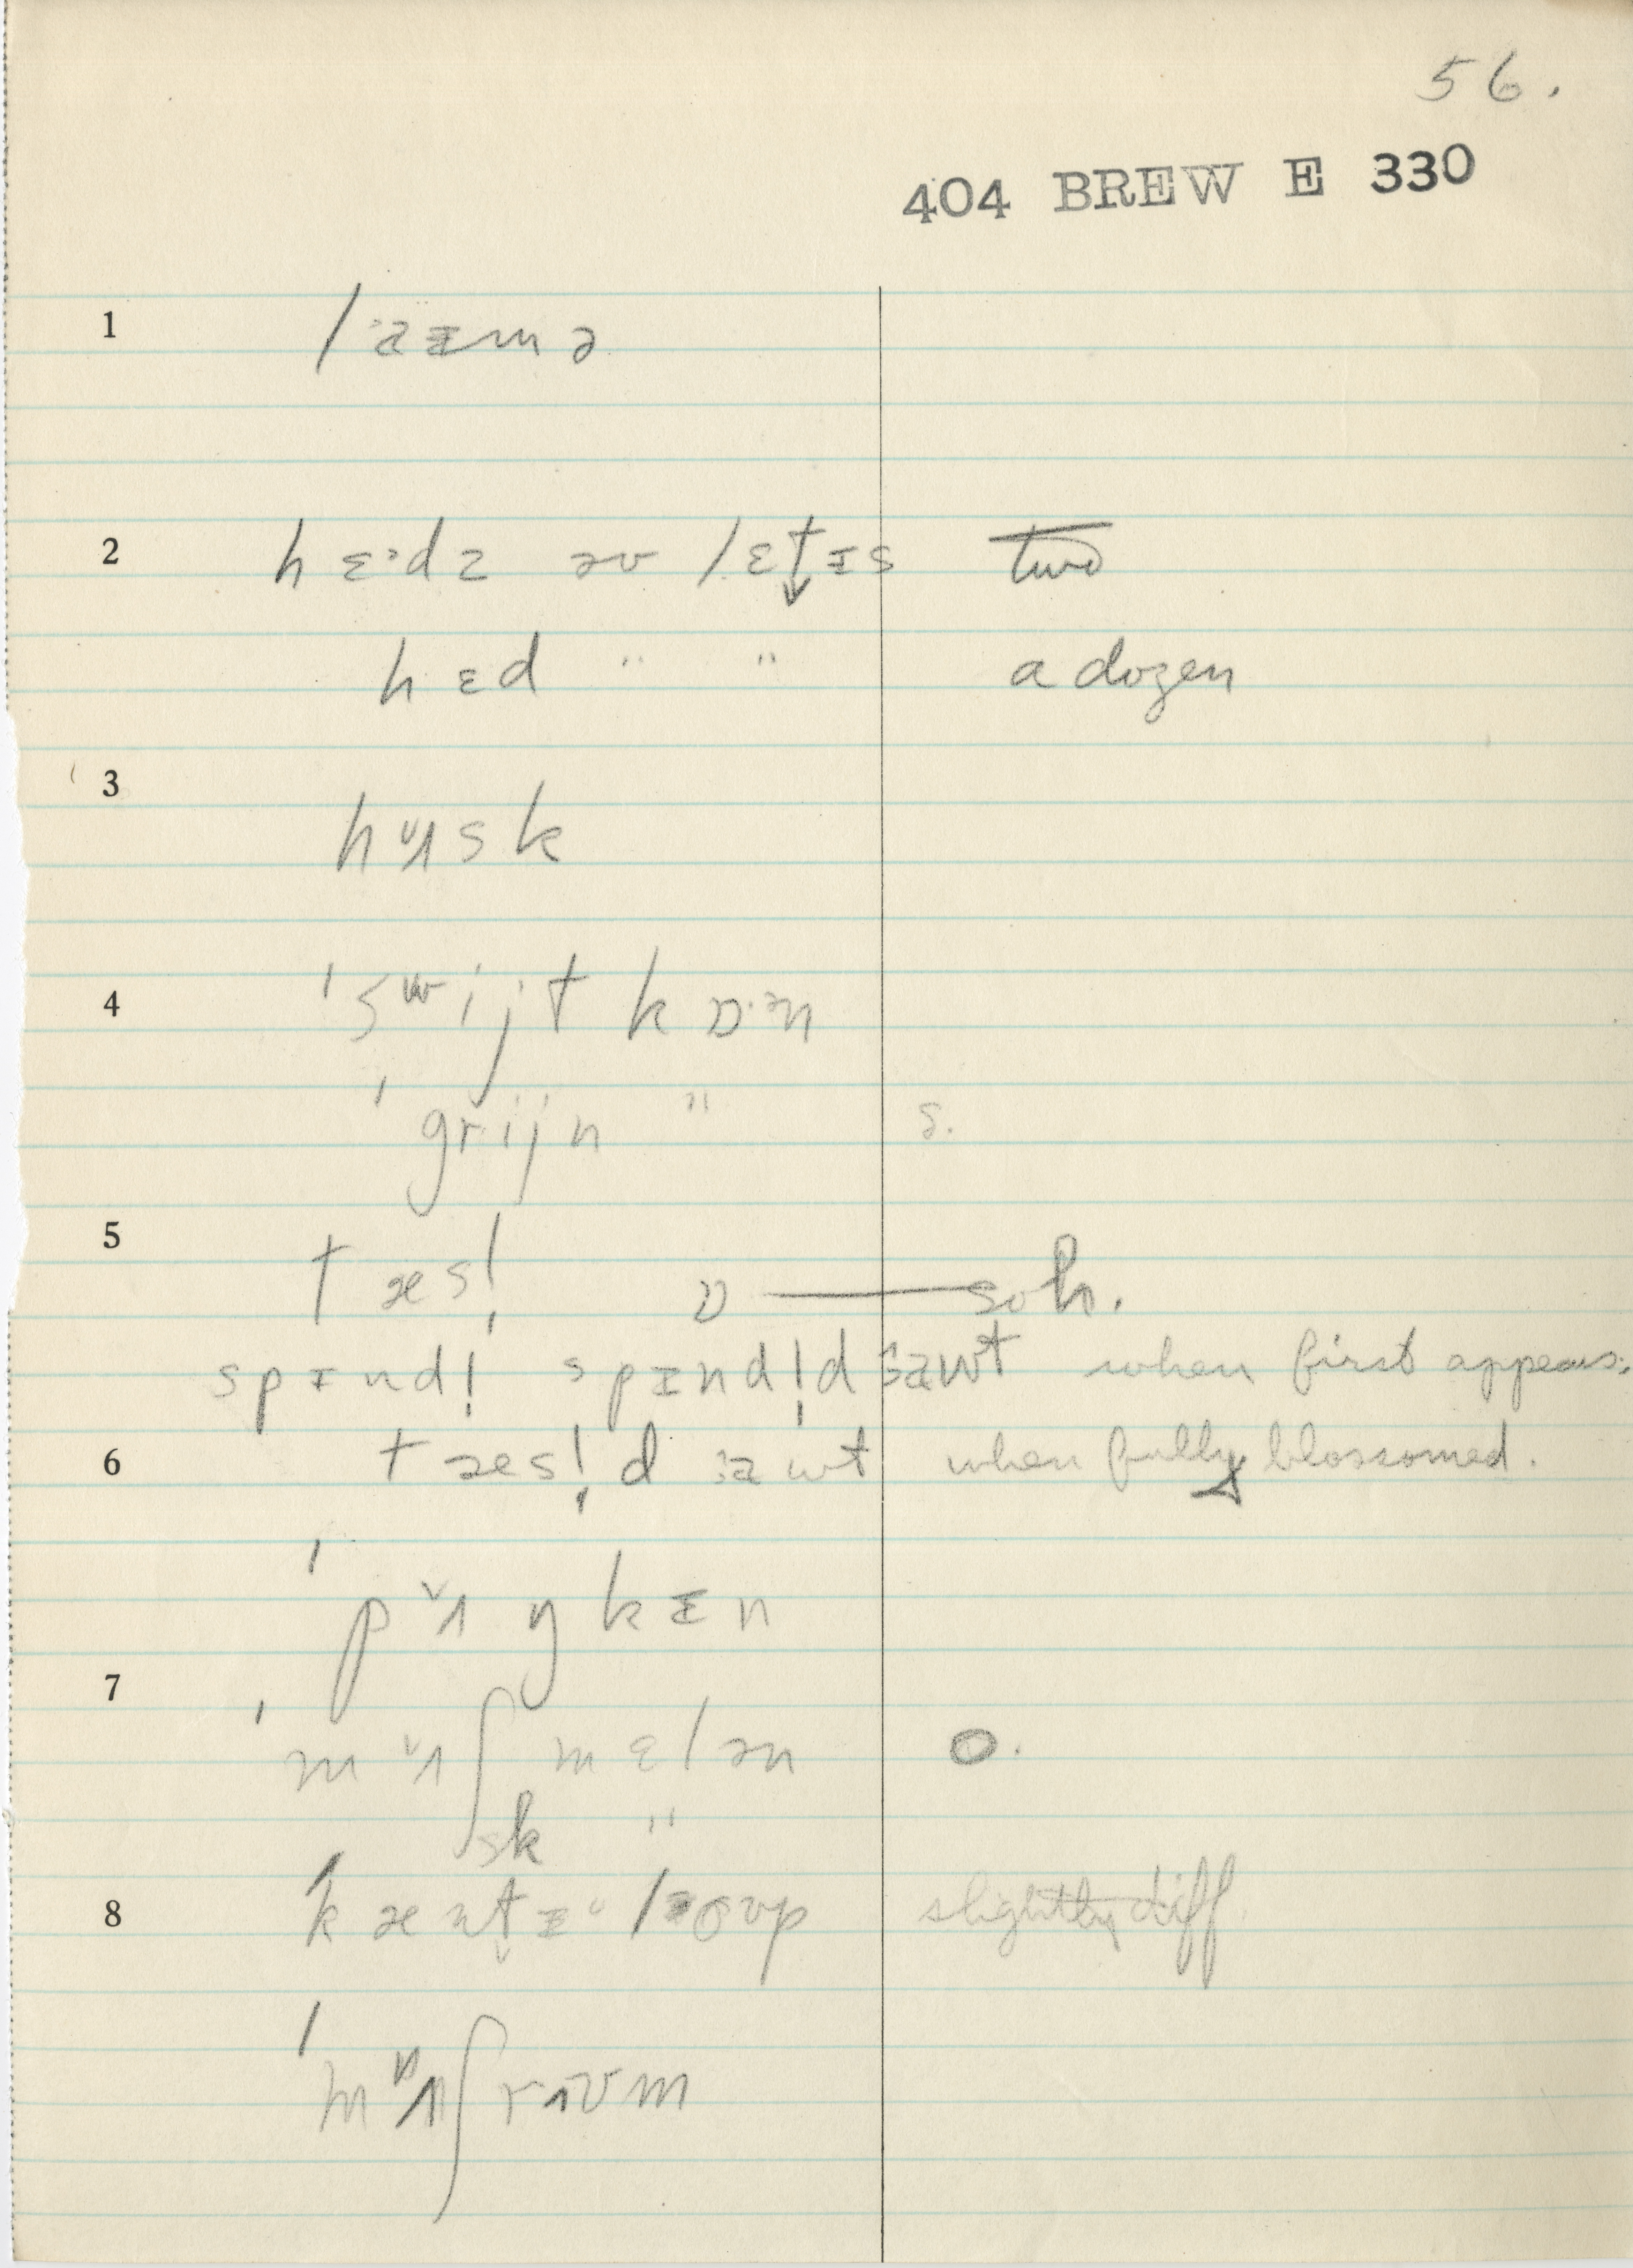 56.
404 BREW E 330
1 laɪmə
2 hɛᵊdz əv lɛt̬ɪs two
hɛd " " a dozen
3 hʌsk
4 ˈswijt kɒˑən
ˈgrijn " s.
5 tæsl̩ ɒ — soh.
spɪndl̩ spɪndl̩d aᵾt when first appears.
6 tæsl̩d aᵾt when fully blossomed.
ˈpʌŋkɪn
7 ˈmʌʃmɛlən o.
sk "
8 ˈkænt̬ə loᵾp slightly diff
ˈmʌʃrᵾm